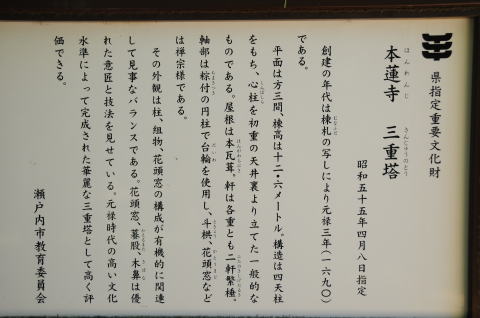 県指定重要文化財
本蓮寺 三重塔
ほんれんじ さんじゅうのとう
昭和五十五年四月八日指定
創建の年代は棟札の写しにより元禄三年(一六九〇)
である。
平面は方三間、棟高は十二・六メートル。構造は四天柱
をもち、心柱を初重の天井裏より立てた一般的な
ものである。屋根は本瓦葺、軒は各重とも二軒繁棰。
軸部は粽付の円柱で台輪を使用し、斗栱、花頭窓など
は禅宗様である。
その外観は柱、組物、花頭窓の構成が有機的に関連
して見事なバランスである。花頭窓、蟇股、木鼻は優
れた意匠と技法を見せている。元禄時代の高い文化
水準によって完成された華麗な三重塔として高く評
価できる。
瀬戸内市教育委員会